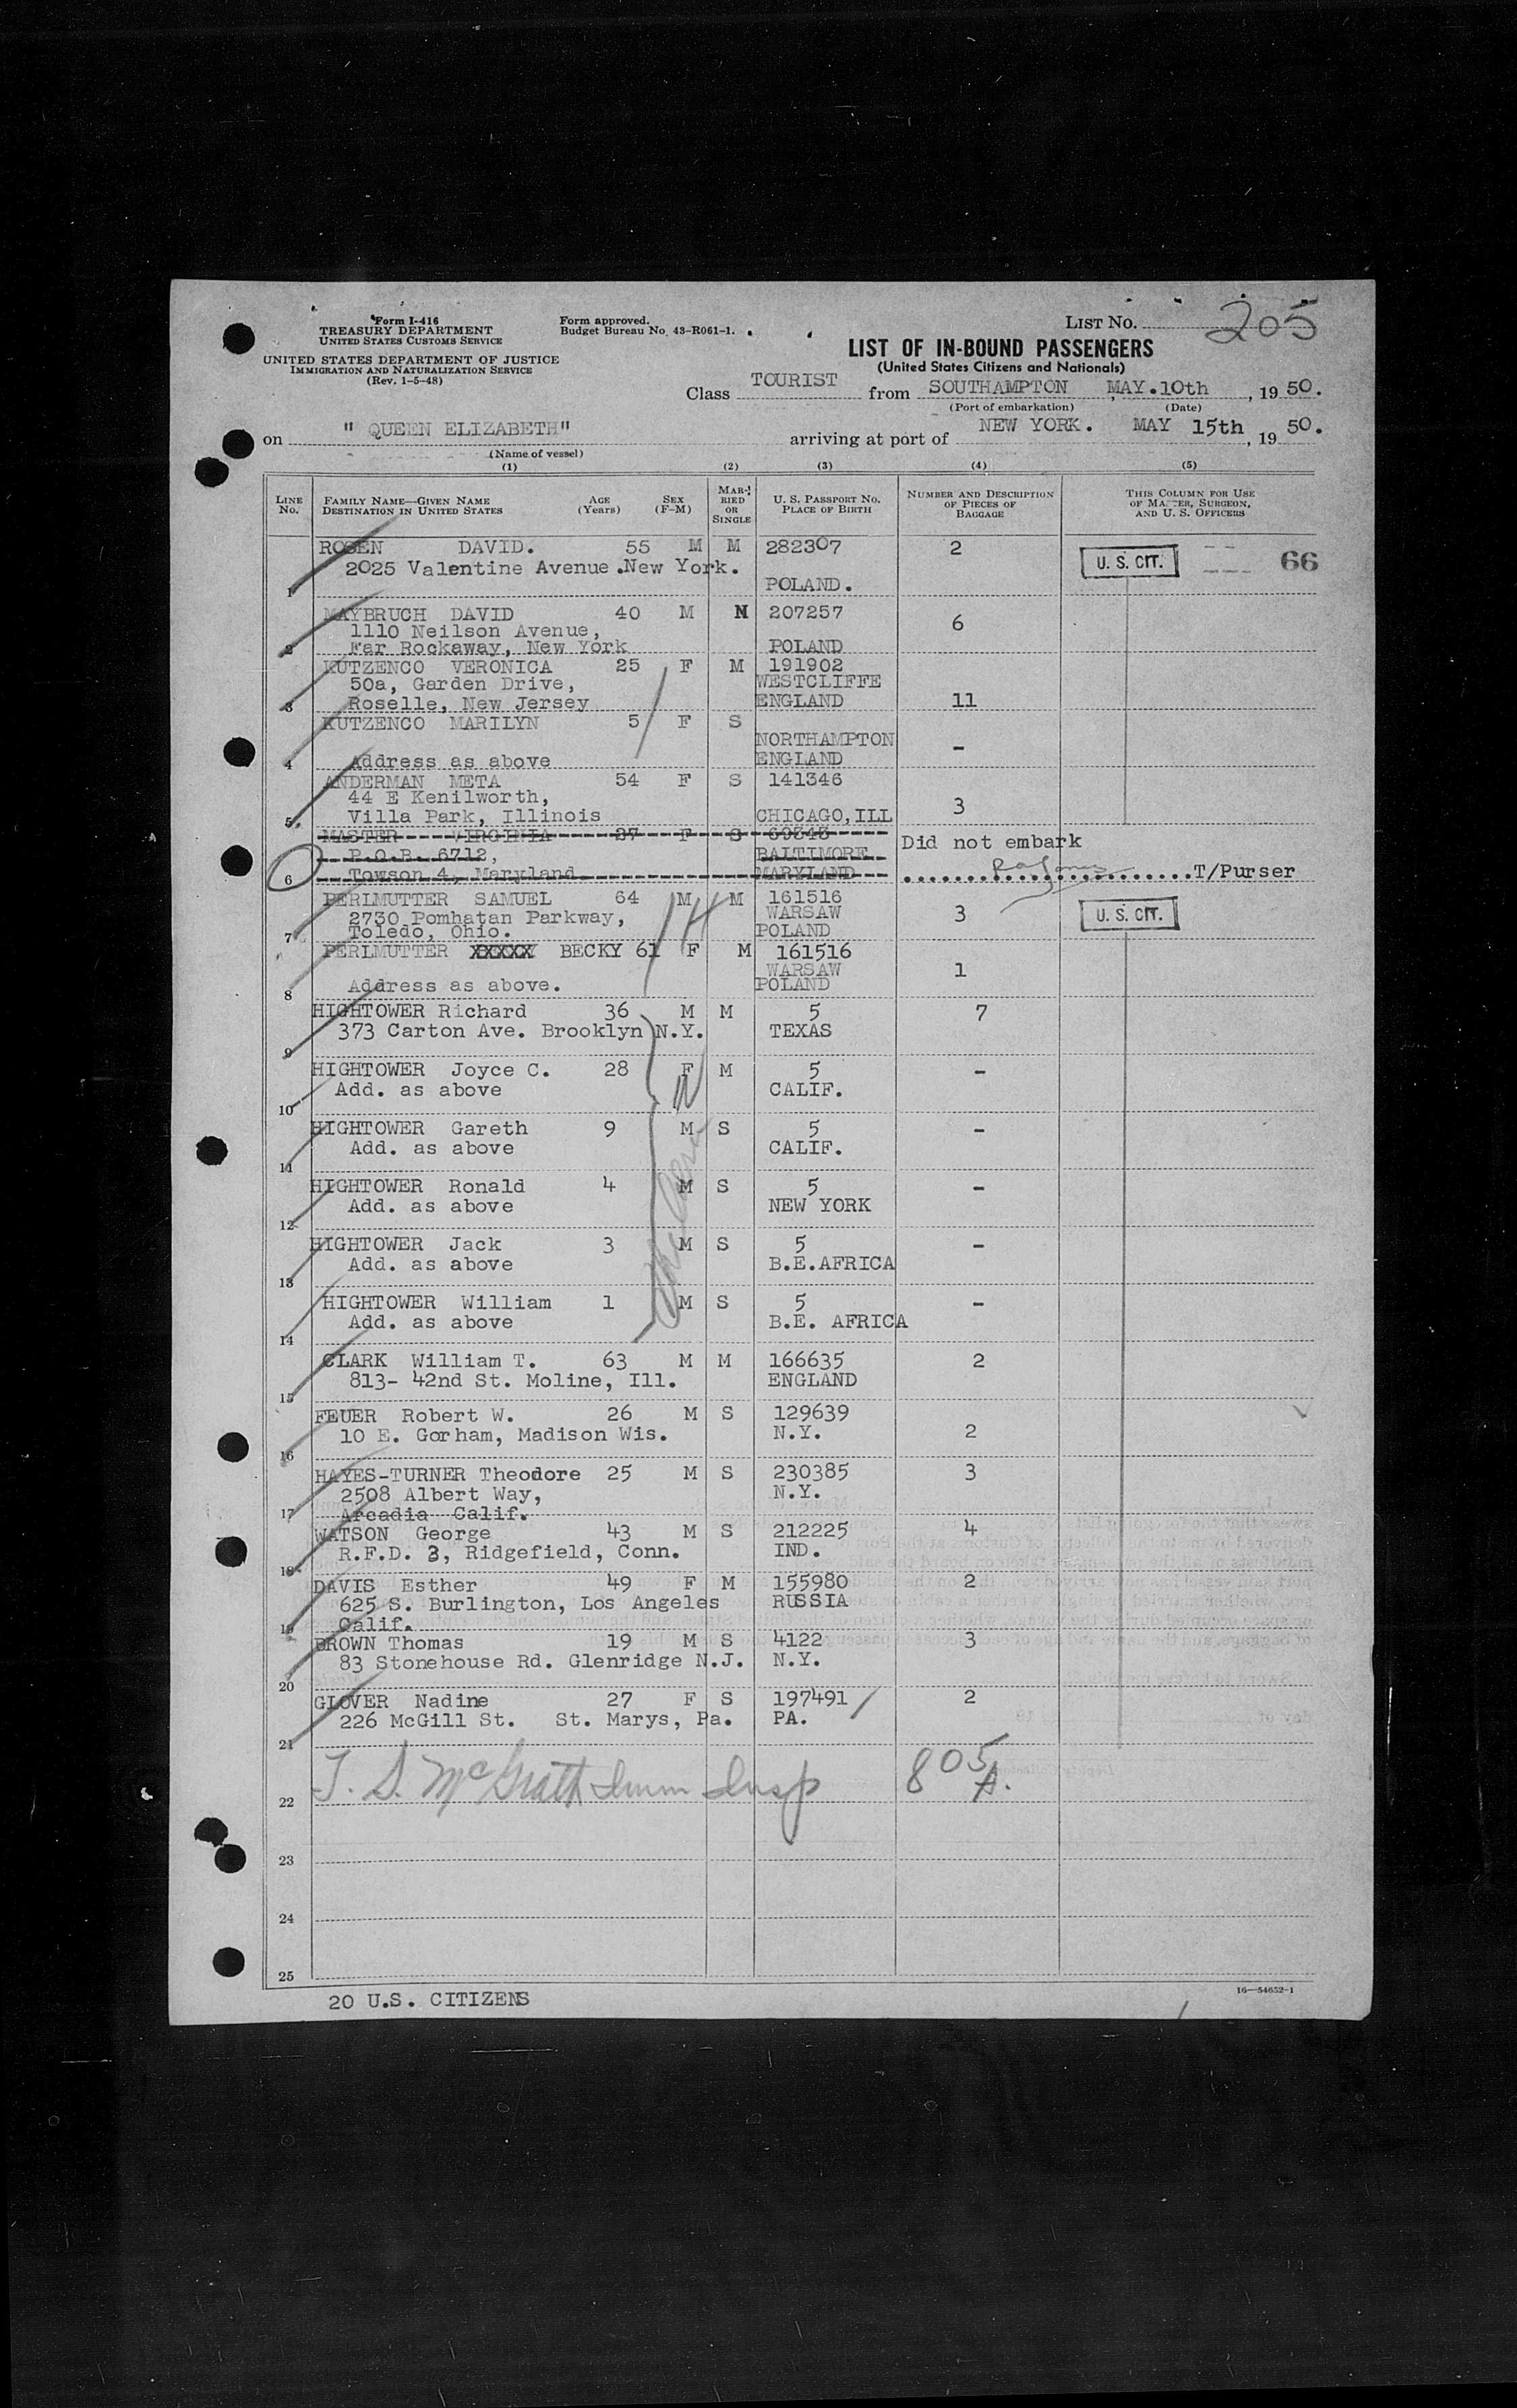 Form I-416
TREASURY DEPARTMENT
UNITED STATES CUSTOMS SERVICE
UNITED STATES DEPARTMENT OF JUSTICE
IMMIGRATION AND NATURALIZATION SERVICE
(Rev. 1-5-48)
Form approved.
Budget Bureau No. 43-R061-1.
LIST No. 205
LIST OF IN-BOUND PASSENGERS
(United States Citizens and Nationals)
Class TOURIST from SOUTHAMPTON, MAY.10th, 1950.
(Port of embarkation) (Date)
on " QUEEN ELIZABETH" arriving at port of NEW YORK. MAY 15th, 1950.
(Name of vessel)
(1) (2) (3) (4) (5)
LINE No. FAMILY NAME—GIVEN NAME DESTINATION IN UNITED STATES AGE (Years) SEX (F-M) MARRIED OR SINGLE U. S. PASSPORT NO. PLACE OF BIRTH NUMBER AND DESCRIPTION OF PIECES OF BAGGAGE THIS COLUMN FOR USE OF MASTER, SURGEON, AND U. S. OFFICERS
ROSEN DAVID. 55 M M 282307 2 U. S. CIT. 66
2025 Valentine Avenue .New York.
1 POLAND.
MAYBRUCH DAVID 40 M M 207257 6
1110 Neilson Avenue,
2 Far Rockaway, New York POLAND
KUTZENCO VERONICA 25 F M 191902
50a, Garden Drive, WESTCLIFFE
3 Roselle, New Jersey ENGLAND 11
KUTZENCO MARILYN 5 F S
NORTHAMPTON -
4 Address as above ENGLAND
ANDERMAN META 54 F S 141346
44 E Kenilworth, 3
5 Villa Park, Illinois CHICAGO, ILL
MASTER VIRGINIA 27 F S 69343 Did not embark
P.O.B. 6712, BALTIMORE
6 Towson 4, Maryland MARYLAND T/Purser
PERLMUTTER SAMUEL 64 M M 161516 3 U. S. CIT.
2730 Pomhatan Parkway, WARSAW
7 Toledo, Ohio. POLAND
PERLMUTTER XXXXX BECKY 61 F M 161516
WARSAW 1
8 Address as above. POLAND
HIGHTOWER Richard 36 M M 5 7
373 Carton Ave. Brooklyn N.Y. TEXAS
9
HIGHTOWER Joyce C. 28 F M 5 -
Add. as above CALIF.
10
HIGHTOWER Gareth 9 M S 5 -
Add. as above CALIF.
11
HIGHTOWER Ronald 4 M S 5 -
Add. as above NEW YORK
12
HIGHTOWER Jack 3 M S 5 -
Add. as above B.E.AFRICA
13
HIGHTOWER William 1 M S 5 -
Add. as above B.E. AFRICA
14
CLARK William T. 63 M M 166635 2
813- 42nd St. Moline, Ill. ENGLAND
15
FEUER Robert W. 26 M S 129639
10 E. Gorham, Madison Wis. N.Y. 2
16
HAYES-TURNER Theodore 25 M S 230385 3
2508 Albert Way, N.Y.
17 Arcadia Calif.
WATSON George 43 M S 212225 4
R.F.D. 3, Ridgefield, Conn. IND.
18
DAVIS Esther 49 F M 155980 2
625 S. Burlington, Los Angeles RUSSIA
19 Calif.
BROWN Thomas 19 M S 4122 3
83 Stonehouse Rd. Glenridge N.J. N.Y.
20
GLOVER Nadine 27 F S 197491 2
226 McGill St. St. Marys, Pa. PA.
21
T. S. McGrath Imm Insp 805 A.
22
23
24
25
20 U.S. CITIZENS
16—54652-1